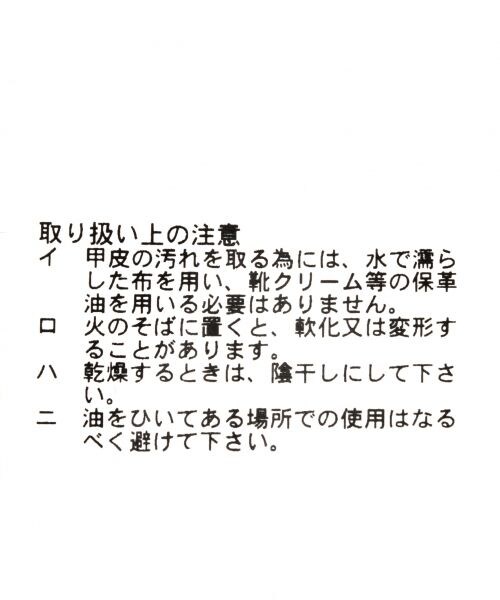 取り扱い上の注意
イ 甲皮の汚れを取る為には、水で濡ら
した布を用い、靴クリーム等の保革
油を用いる必要はありません。
ロ 火のそばに置くと、軟化又は変形す
ることがあります。
ハ 乾燥するときは、陰干しにして下さ
い。
ニ 油をひいてある場所での使用はなる
べく避けて下さい。